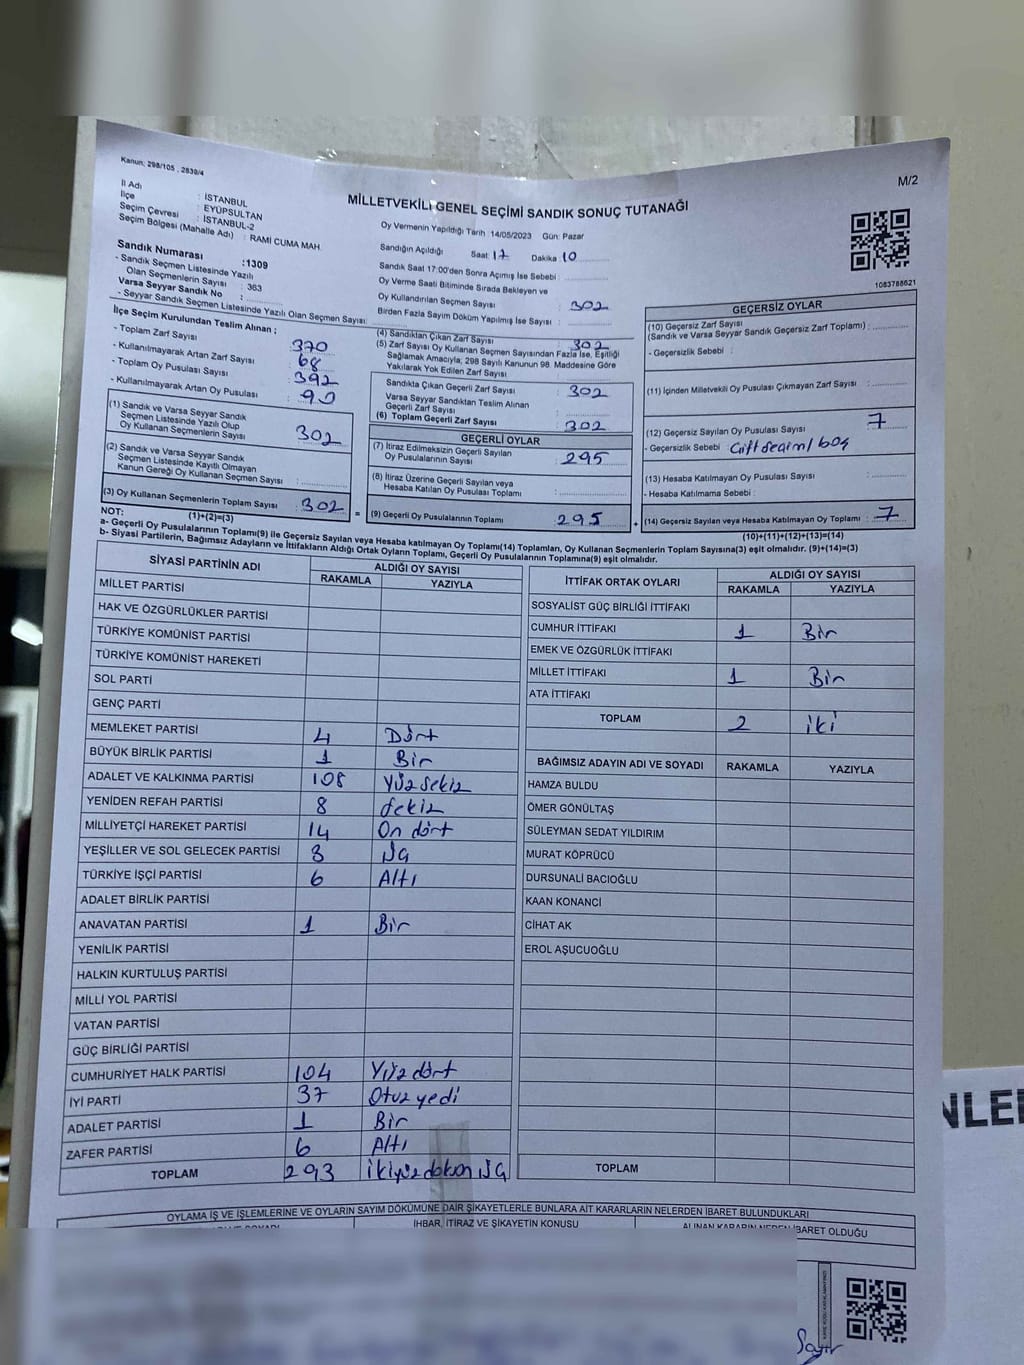 Kanun; 298/105 , 2839/4
M/2
MİLLETVEKİLİ GENEL SEÇİMİ SANDIK SONUÇ TUTANAĞI
İl Adı : İSTANBUL
İlçe : EYÜPSULTAN
Seçim Çevresi : İSTANBUL-2
Seçim Bölgesi (Mahalle Adı) : RAMİ CUMA MAH.
Sandık Numarası :1309
- Sandık Seçmen Listesinde Yazılı
Olan Seçmenlerin Sayısı : 363
Varsa Seyyar Sandık No :
- Seyyar Sandık Seçmen Listesinde Yazılı Olan Seçmen Sayısı:
Oy Vermenin Yapıldığı Tarih 14/05/2023 Gün: Pazar
Sandığın Açıldığı Saat 17 Dakika 10
Sandık Saat 17:00'den Sonra Açımış İse Sebebi :
Oy Verme Saati Bitiminde Sırada Bekleyen ve
Oy Kullandırılan Seçmen Sayısı : 302
Birden Fazla Sayım Döküm Yapılmış İse Sayısı :
1083788621
İlçe Seçim Kurulundan Teslim Alınan ;
- Toplam Zarf Sayısı : 370
- Kullanılmayarak Artan Zarf Sayısı : 68
- Toplam Oy Pusulası Sayısı : 392
- Kullanılmayarak Artan Oy Pusulası : 90
(1) Sandık ve Varsa Seyyar Sandık
Seçmen Listesinde Yazılı Olup
Oy Kullanan Seçmenlerin Sayısı : 302
(2) Sandık ve Varsa Seyyar Sandık
Seçmen Listesinde Kayıtlı Olmayan
Kanun Gereği Oy Kullanan Seçmen Sayısı :
(3) Oy Kullanan Seçmenlerin Toplam Sayısı : 302
(1)+(2)=(3)
(4) Sandıktan Çıkan Zarf Sayısı : 302
(5) Zarf Sayısı Oy Kullanan Seçmen Sayısından Fazla İse, Eşitliği
Sağlamak Amacıyla; 298 Sayılı Kanunun 98. Maddesine Göre
Yakılarak Yok Edilen Zarf Sayısı :
Sandıkta Çıkan Geçerli Zarf Sayısı : 302
Varsa Seyyar Sandıktan Teslim Alınan
Geçerli Zarf Sayısı :
(6) Toplam Geçerli Zarf Sayısı : 302
GEÇERLİ OYLAR
(7) İtiraz Edilmeksizin Geçerli Sayılan
Oy Pusulalarının Sayısı : 295
(8) İtiraz Üzerine Geçerli Sayılan veya
Hesaba Katılan Oy Pusulası Toplamı :
= (9) Geçerli Oy Pusulalarının Toplamı : 295
GEÇERSİZ OYLAR
(10) Geçersiz Zarf Sayısı
(Sandık ve Varsa Seyyar Sandık Geçersiz Zarf Toplamı) :
- Geçersizlik Sebebi :
(11) İçinden Milletvekili Oy Pusulası Çıkmayan Zarf Sayısı :
(12) Geçersiz Sayılan Oy Pusulası Sayısı : 7
- Geçersizlik Sebebi : Çift seçim / boş
(13) Hesaba Katılmayan Oy Pusulası Sayısı :
- Hesaba Katılmama Sebebi :
+ (14) Geçersiz Sayılan veya Hesaba Katılmayan Oy Toplamı : 7
(10)+(11)+(12)+(13)=(14)
NOT:
a- Geçerli Oy Pusulaları Toplamı(9) ile Geçersiz Sayılan veya Hesaba Katılmayan Oy Toplamı(14) Toplamları, Oy Kullanan Seçmenlerin Toplam Sayısına(3) eşit olmalıdır. (9)+(14)=(3)
b- Siyasi Partilerin, Bağımsız Adayların ve İttifakların Aldığı Ortak Oyların Toplamı, Geçerli Oy Pusulalarının Toplamına(9) eşit olmalıdır.
SİYASİ PARTİNİN ADI ALDIĞI OY SAYISI
RAKAMLA YAZIYLA
MİLLET PARTİSİ
HAK VE ÖZGÜRLÜKLER PARTİSİ
TÜRKİYE KOMÜNİST PARTİSİ
TÜRKİYE KOMÜNİST HAREKETİ
SOL PARTİ
GENÇ PARTİ
MEMLEKET PARTİSİ 4 Dört
BÜYÜK BİRLİK PARTİSİ 1 Bir
ADALET VE KALKINMA PARTİSİ 108 Yüz sekiz
YENİDEN REFAH PARTİSİ 8 sekiz
MİLLİYETÇİ HAREKET PARTİSİ 14 On dört
YEŞİLLER VE SOL GELECEK PARTİSİ 3 üç
TÜRKİYE İŞÇİ PARTİSİ 6 Altı
ADALET BİRLİK PARTİSİ
ANAVATAN PARTİSİ 1 Bir
YENİLİK PARTİSİ
HALKIN KURTULUŞ PARTİSİ
MİLLİ YOL PARTİSİ
VATAN PARTİSİ
GÜÇ BİRLİĞİ PARTİSİ
CUMHURİYET HALK PARTİSİ 104 Yüz dört
İYİ PARTİ 37 Otuz yedi
ADALET PARTİSİ 1 Bir
ZAFER PARTİSİ 6 Altı
TOPLAM 293 ikiyüz doksan üç
İTTİFAK ORTAK OYLARI ALDIĞI OY SAYISI
RAKAMLA YAZIYLA
SOSYALİST GÜÇ BİRLİĞİ İTTİFAKI
CUMHUR İTTİFAKI 1 Bir
EMEK VE ÖZGÜRLÜK İTTİFAKI
MİLLET İTTİFAKI 1 Bir
ATA İTTİFAKI
TOPLAM 2 iki
BAĞIMSIZ ADAYIN ADI VE SOYADI RAKAMLA YAZIYLA
HAMZA BULDU
ÖMER GÖNÜLTAŞ
SÜLEYMAN SEDAT YILDIRIM
MURAT KÖPRÜCÜ
DURSUNALİ BACIOĞLU
KAAN KONANCİ
CİHAT AK
EROL AŞUCUOĞLU
TOPLAM
OYLAMA İŞ VE İŞLEMLERİNE VE OYLARIN SAYIM DÖKÜMÜNE DAİR ŞİKAYETLERLE BUNLARA AİT KARARLARIN NELERDEN İBARET BULUNDUKLARI
İHBAR, İTİRAZ VE ŞİKAYETİN KONUSU
ALINAN KARARIN NEDEN İBARET OLDUĞU
NLER